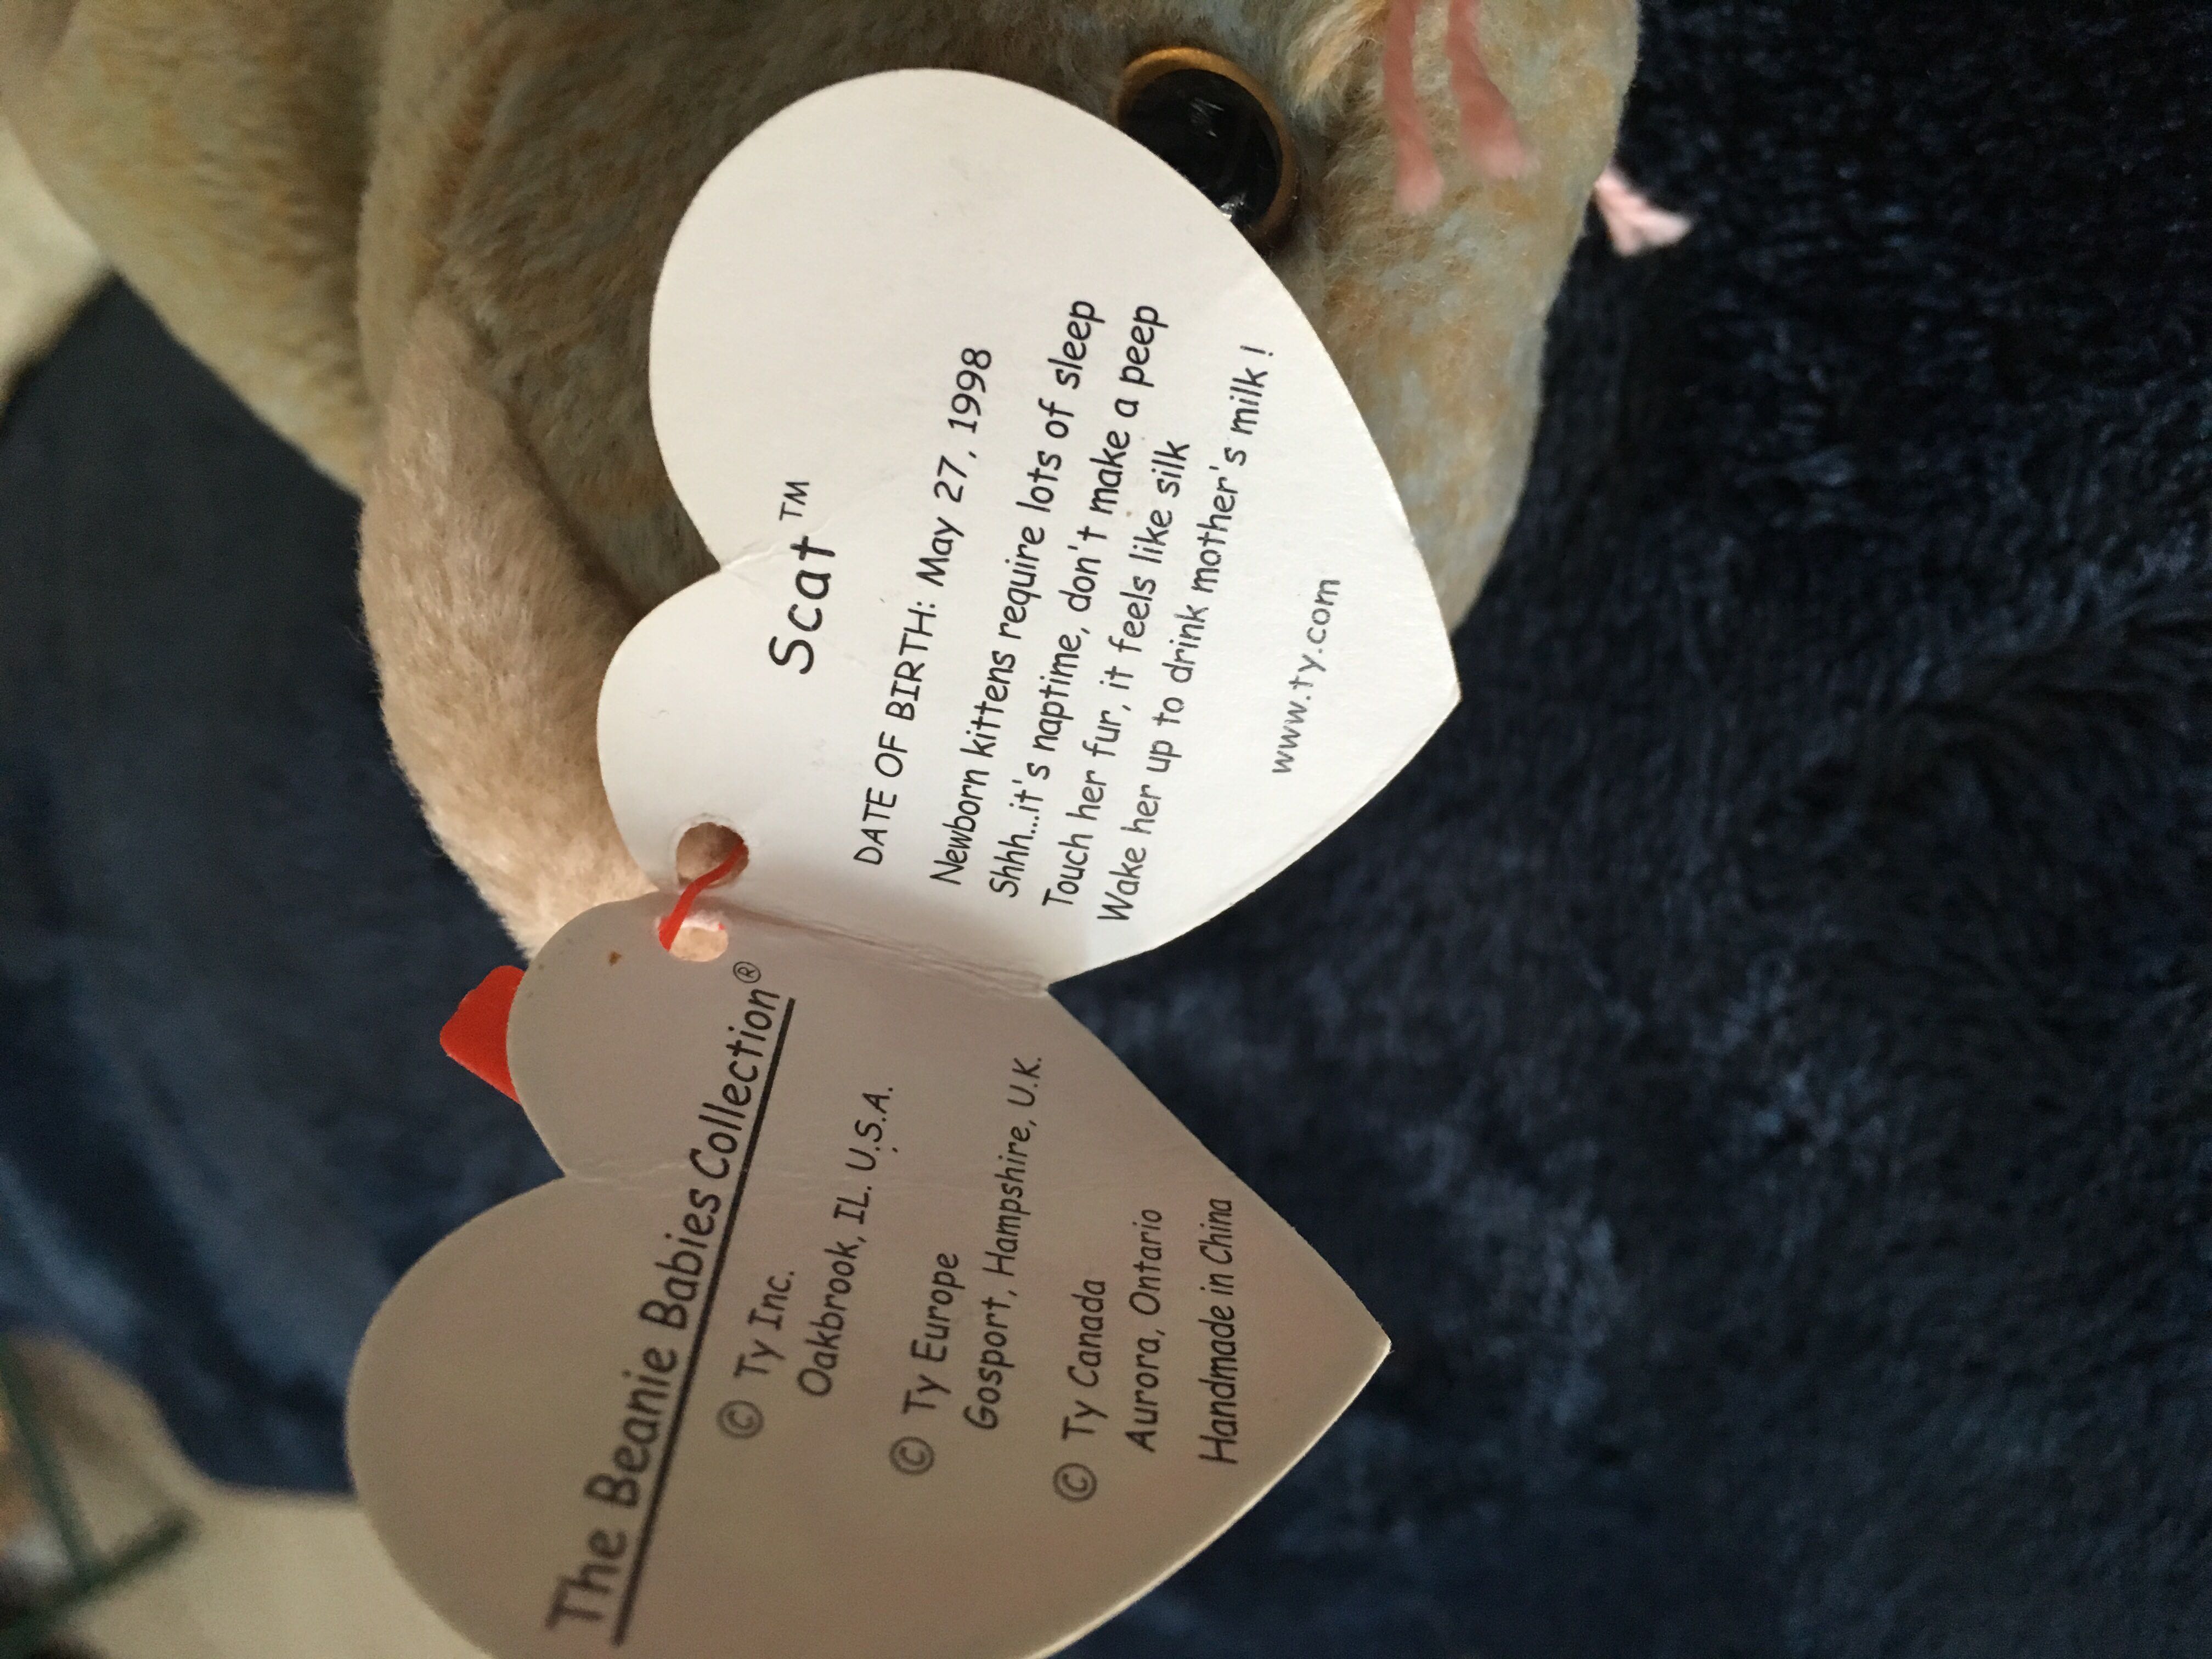 The Beanie Babies Collection®
© Ty Inc.
Oakbrook, IL. U.S.A.
© Ty Europe
Gosport, Hampshire, U.K.
© Ty Canada
Aurora, Ontario
Handmade in China
Scat™
DATE OF BIRTH: May 27, 1998
Newborn kittens require lots of sleep
Shhh...it's naptime, don't make a peep
Touch her fur, it feels like silk
Wake her up to drink mother's milk !
www.ty.com